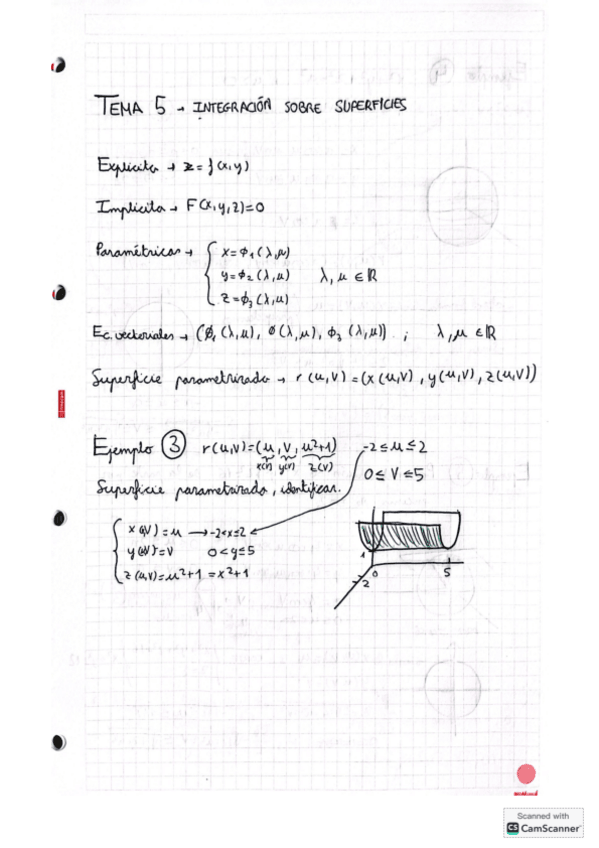 TEMA 5 → INTEGRACIÓN SOBRE SUPERFICIES
Explícita → z = f(x,y)
Implícita → F(x,y,z)=0
Paramétricas → { x = ϕ₁(λ,μ)
y = ϕ₂(λ,μ) λ, μ ∈ ℝ
z = ϕ₃(λ,μ)
Ec. vectoriales → (ϕ₁(λ,μ), ϕ(λ,μ), ϕ₃(λ,μ)) ; λ, μ ∈ ℝ
Superficie parametrizada → r(u,v) = (x(u,v), y(u,v), z(u,v))
Ejemplo ③ r(u,v) = (u, v, u²+1) -2 ≤ u ≤ 2
x(v) y(v) z(v) 0 ≤ v ≤ 5
Superficie parametrizada, identificar.
{ x(u,v) = u → -2<x≤2
y(u,v) = v 0<y≤5
z(u,v) = u²+1 = x²+1
1
0
5
2
Scanned with
CS CamScanner